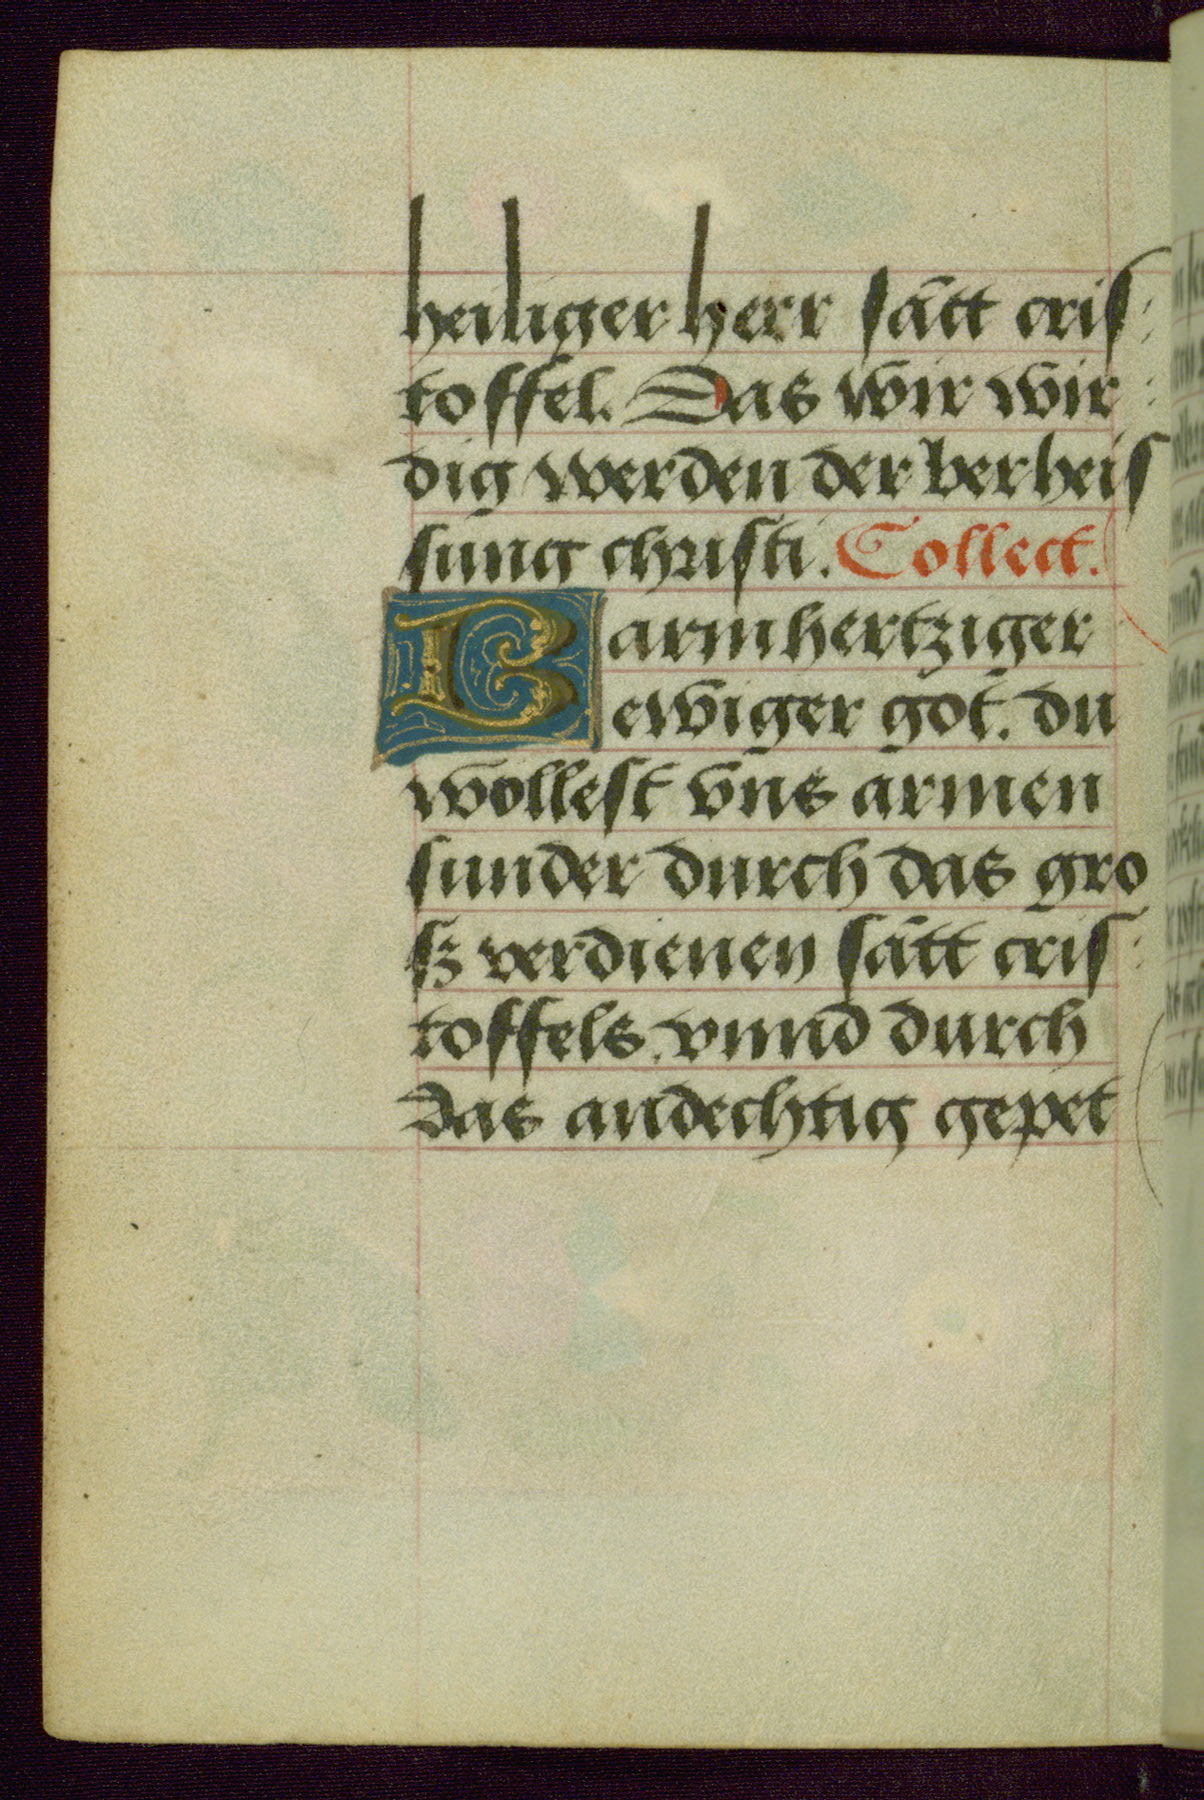 heiliger herr sātt cris:
toffel. Das wir wir:
dig werden der verheis
sung christi. Collect.
Barmhertziger
ewiger got. du
wollest vns armen
sunder durch das gro
sz verdienen sātt cris:
toffels. vnnd durch
das andechtig gepet